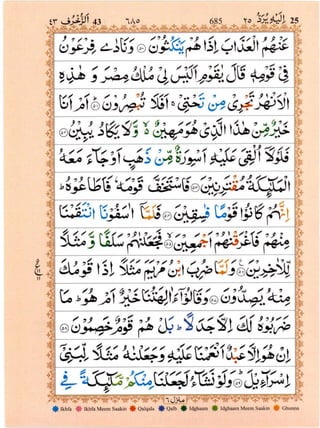 اِلَيْهِ يُرَدُّ ٢٥ 25 685 ٦٨٥ اَلزُّخْرُف ٤٣ 43
عَنْهُمُ الْعَذَابَ اِذَا هُمْ يَنْكُثُوْنَ ۝٥٠ وَنَادٰى فِرْعَوْنُ
فِيْ قَوْمِهٖ قَالَ يٰقَوْمِ اَلَيْسَ لِيْ مُلْكُ مِصْرَ وَ هٰذِهِ
الْاَنْهٰرُ تَجْرِيْ مِنْ تَحْتِيْ ۚ اَفَلَا تُبْصِرُوْنَ ۝٥١ اَمْ اَنَا
خَيْرٌ مِّنْ هٰذَا الَّذِيْ هُوَ مَهِيْنٌ ۙ وَّلَا يَكَادُ يُبِيْنُ ۝٥٢
فَلَوْلَآ اُلْقِيَ عَلَيْهِ اَسْوِرَةٌ مِّنْ ذَهَبٍ اَوْ جَآءَ مَعَهُ
الْمَلٰٓئِكَةُ مُقْتَرِنِيْنَ ۝٥٣ فَاسْتَخَفَّ قَوْمَهٗ فَاَطَاعُوْهُ ؕ
اِنَّهُمْ كَانُوْا قَوْمًا فٰسِقِيْنَ ۝٥٤ فَلَمَّآ اٰسَفُوْنَا انْتَقَمْنَا
مِنْهُمْ فَاَغْرَقْنٰهُمْ اَجْمَعِيْنَ ۝٥٥ فَجَعَلْنٰهُمْ سَلَفًا وَّ مَثَلًا
لِّلْاٰخِرِيْنَ ۝٥٦ وَلَمَّا ضُرِبَ ابْنُ مَرْيَمَ مَثَلًا اِذَا قَوْمُكَ
مِنْهُ يَصِدُّوْنَ ۝٥٧ وَقَالُوْٓا ءَاٰلِهَتُنَا خَيْرٌ اَمْ هُوَ ؕ مَا
ضَرَبُوْهُ لَكَ اِلَّا جَدَلًا ؕ بَلْ هُمْ قَوْمٌ خَصِمُوْنَ ۝٥٨
اِنْ هُوَ اِلَّا عَبْدٌ اَنْعَمْنَا عَلَيْهِ وَجَعَلْنٰهُ مَثَلًا لِّبَنِيْٓ
اِسْرَآءِيْلَ ۝٥٩ وَلَوْ نَشَآءُ لَجَعَلْنَا مِنْكُمْ مَّلٰٓئِكَةً فِي
منزل ٦
Ikhfa Ikhfa Meem Saakin Qalqala Qalb Idghaam Idghaam Meem Saakin Ghunna